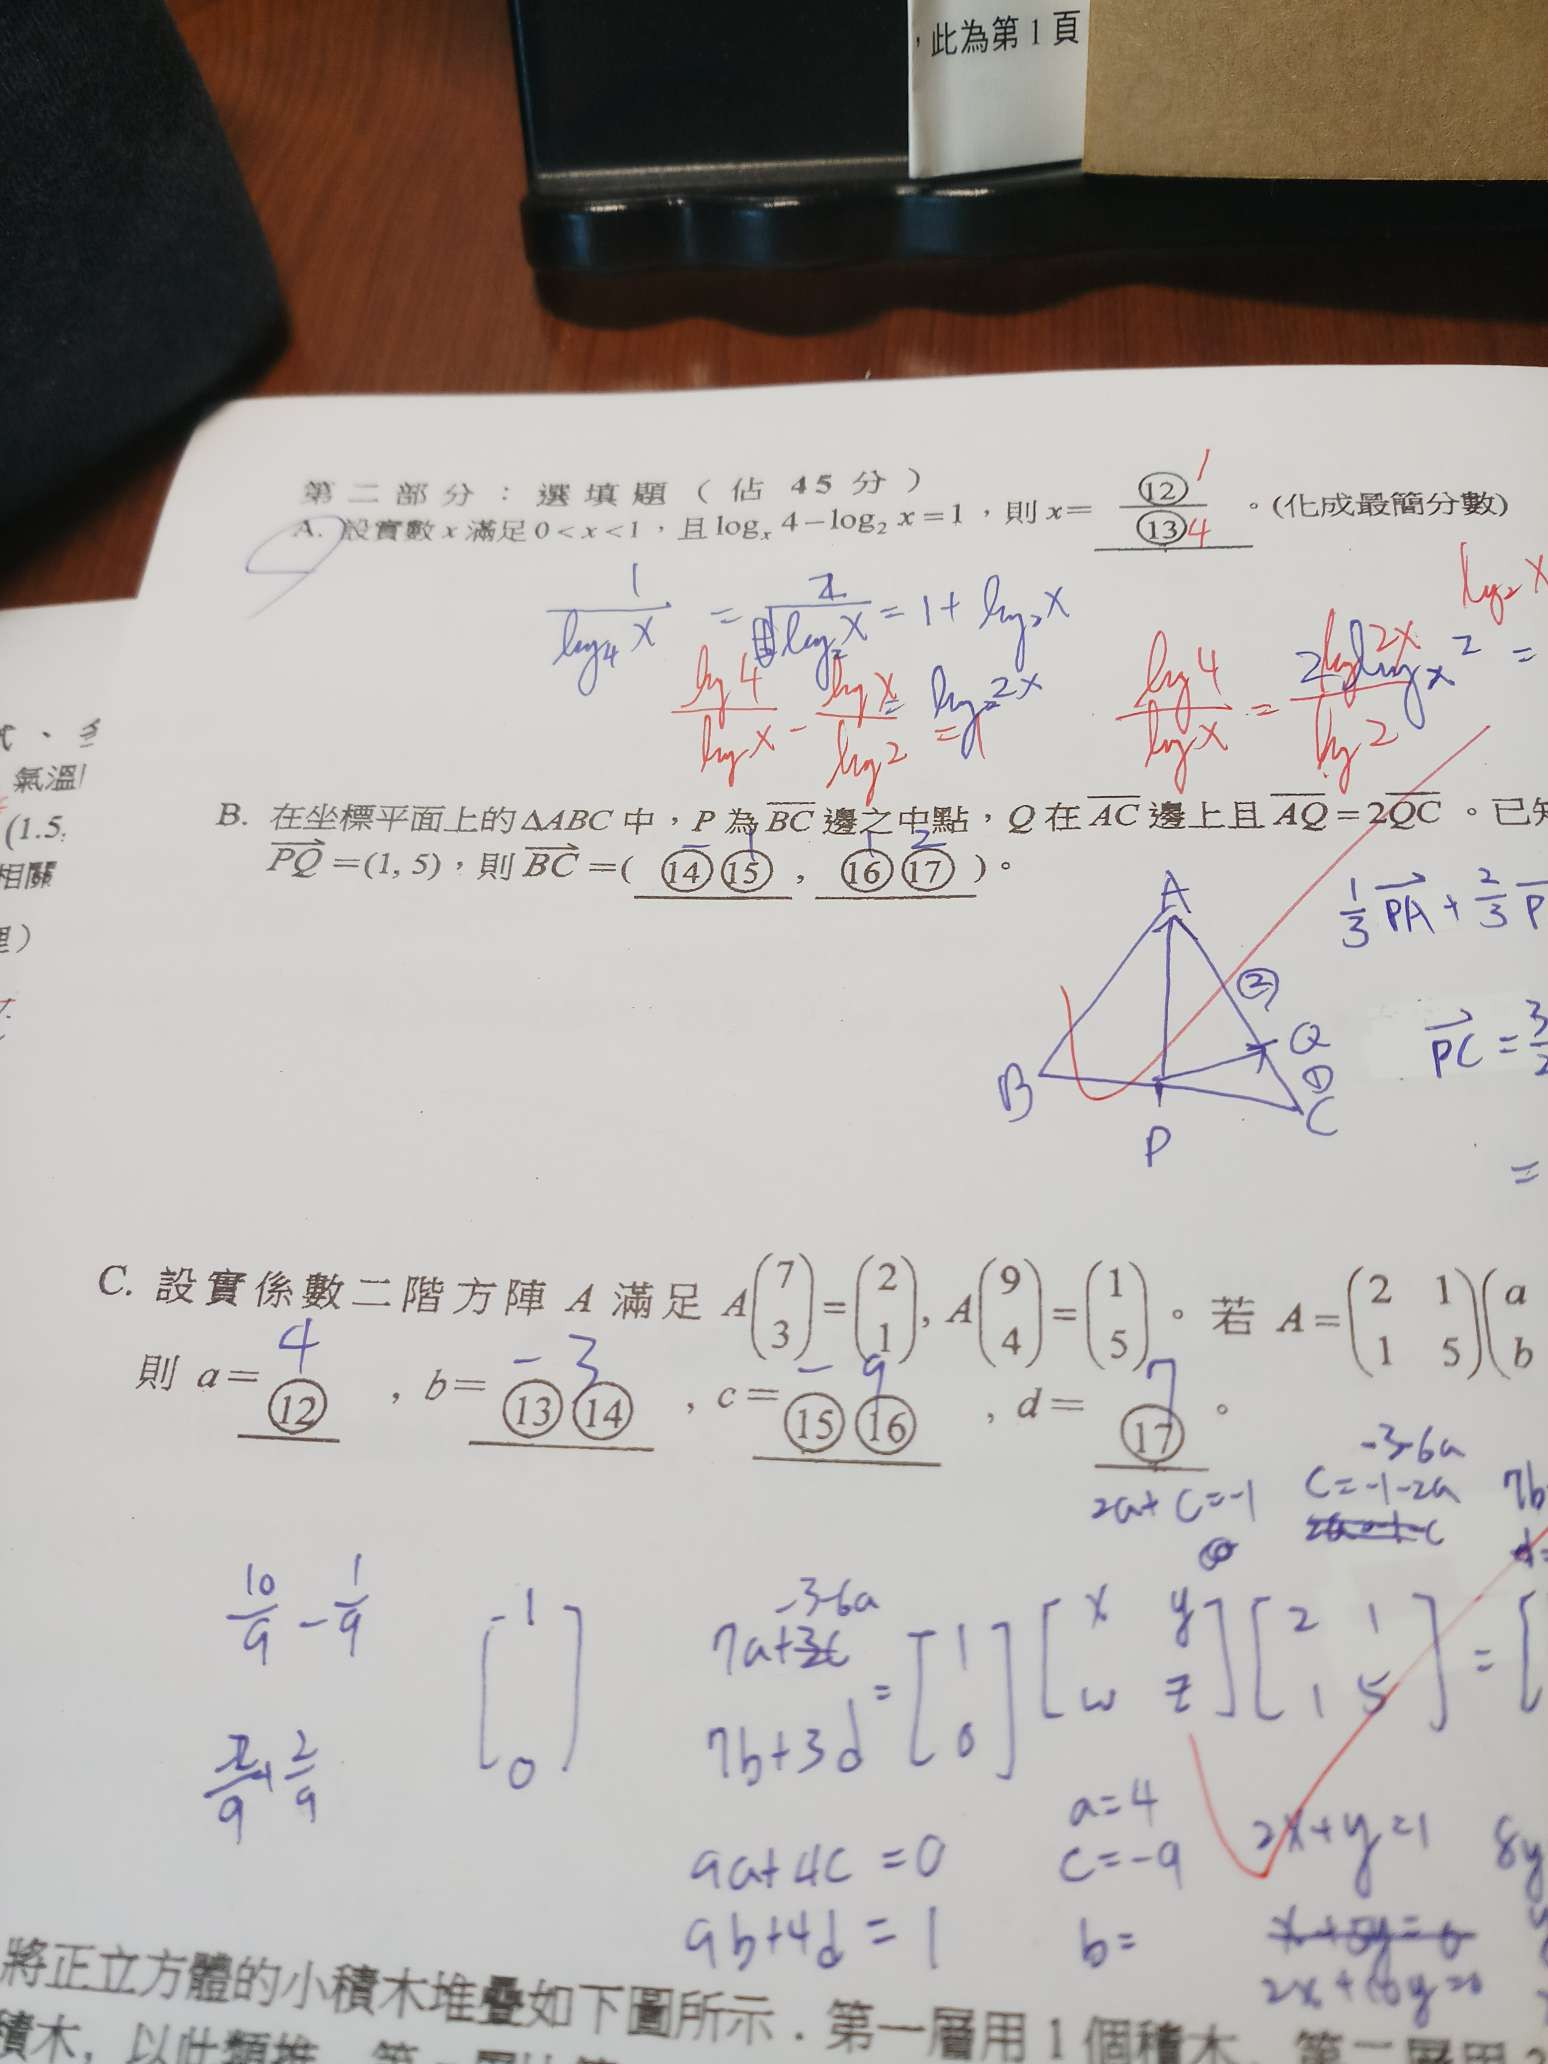 ，此為第1頁
第二部分：選填題（佔 45 分）
A. 設實數 x 滿足 0<x<1，且 log_x 4−log_2 x=1，則 x= ⑫/⑬ 。(化成最簡分數)
1
4
1/log_4 x = 2/log_2 x = 1+ log_2 x
= log_2 2x
log 4/log x − log x/log 2 = 1
log 4/log x = log 2x/log 2
氣溫
(1.5
相關
B. 在坐標平面上的ΔABC 中，P 為 BC 邊之中點，Q 在 AC 邊上且 AQ=2QC 。已知
PQ =(1, 5)，則 BC =( ⑭⑮ , ⑯⑰ )。
− 1 1 2
1/3 PA + 2/3 P
A
②
Q
①
B
C
P
PC = 3/2
=
C. 設實係數二階方陣 A 滿足 A(7 3)=(2 1), A(9 4)=(1 5) 。若 A=(2 1 1 5)(a b
4 − 3 − 9 7
則 a= ⑫ ，b= ⑬⑭ ，c= ⑮⑯ ，d= ⑰ 。
-3-6a
2a+ c=-1 c=-1-2a 7b
10/9 − 1/9
[-1 0]
-3-6a
7a+3c
7b+3d
= [1 0]
[x y w z] [2 1 1 5] = [
2/9
a=4
9a+4c =0 c=-9 2x+y=1 8y
9b+4d = 1 b=
2x+10y=0
將正立方體的小積木堆疊如下圖所示．第一層用 1 個積木，第二層用 3
積木，以此類推，第